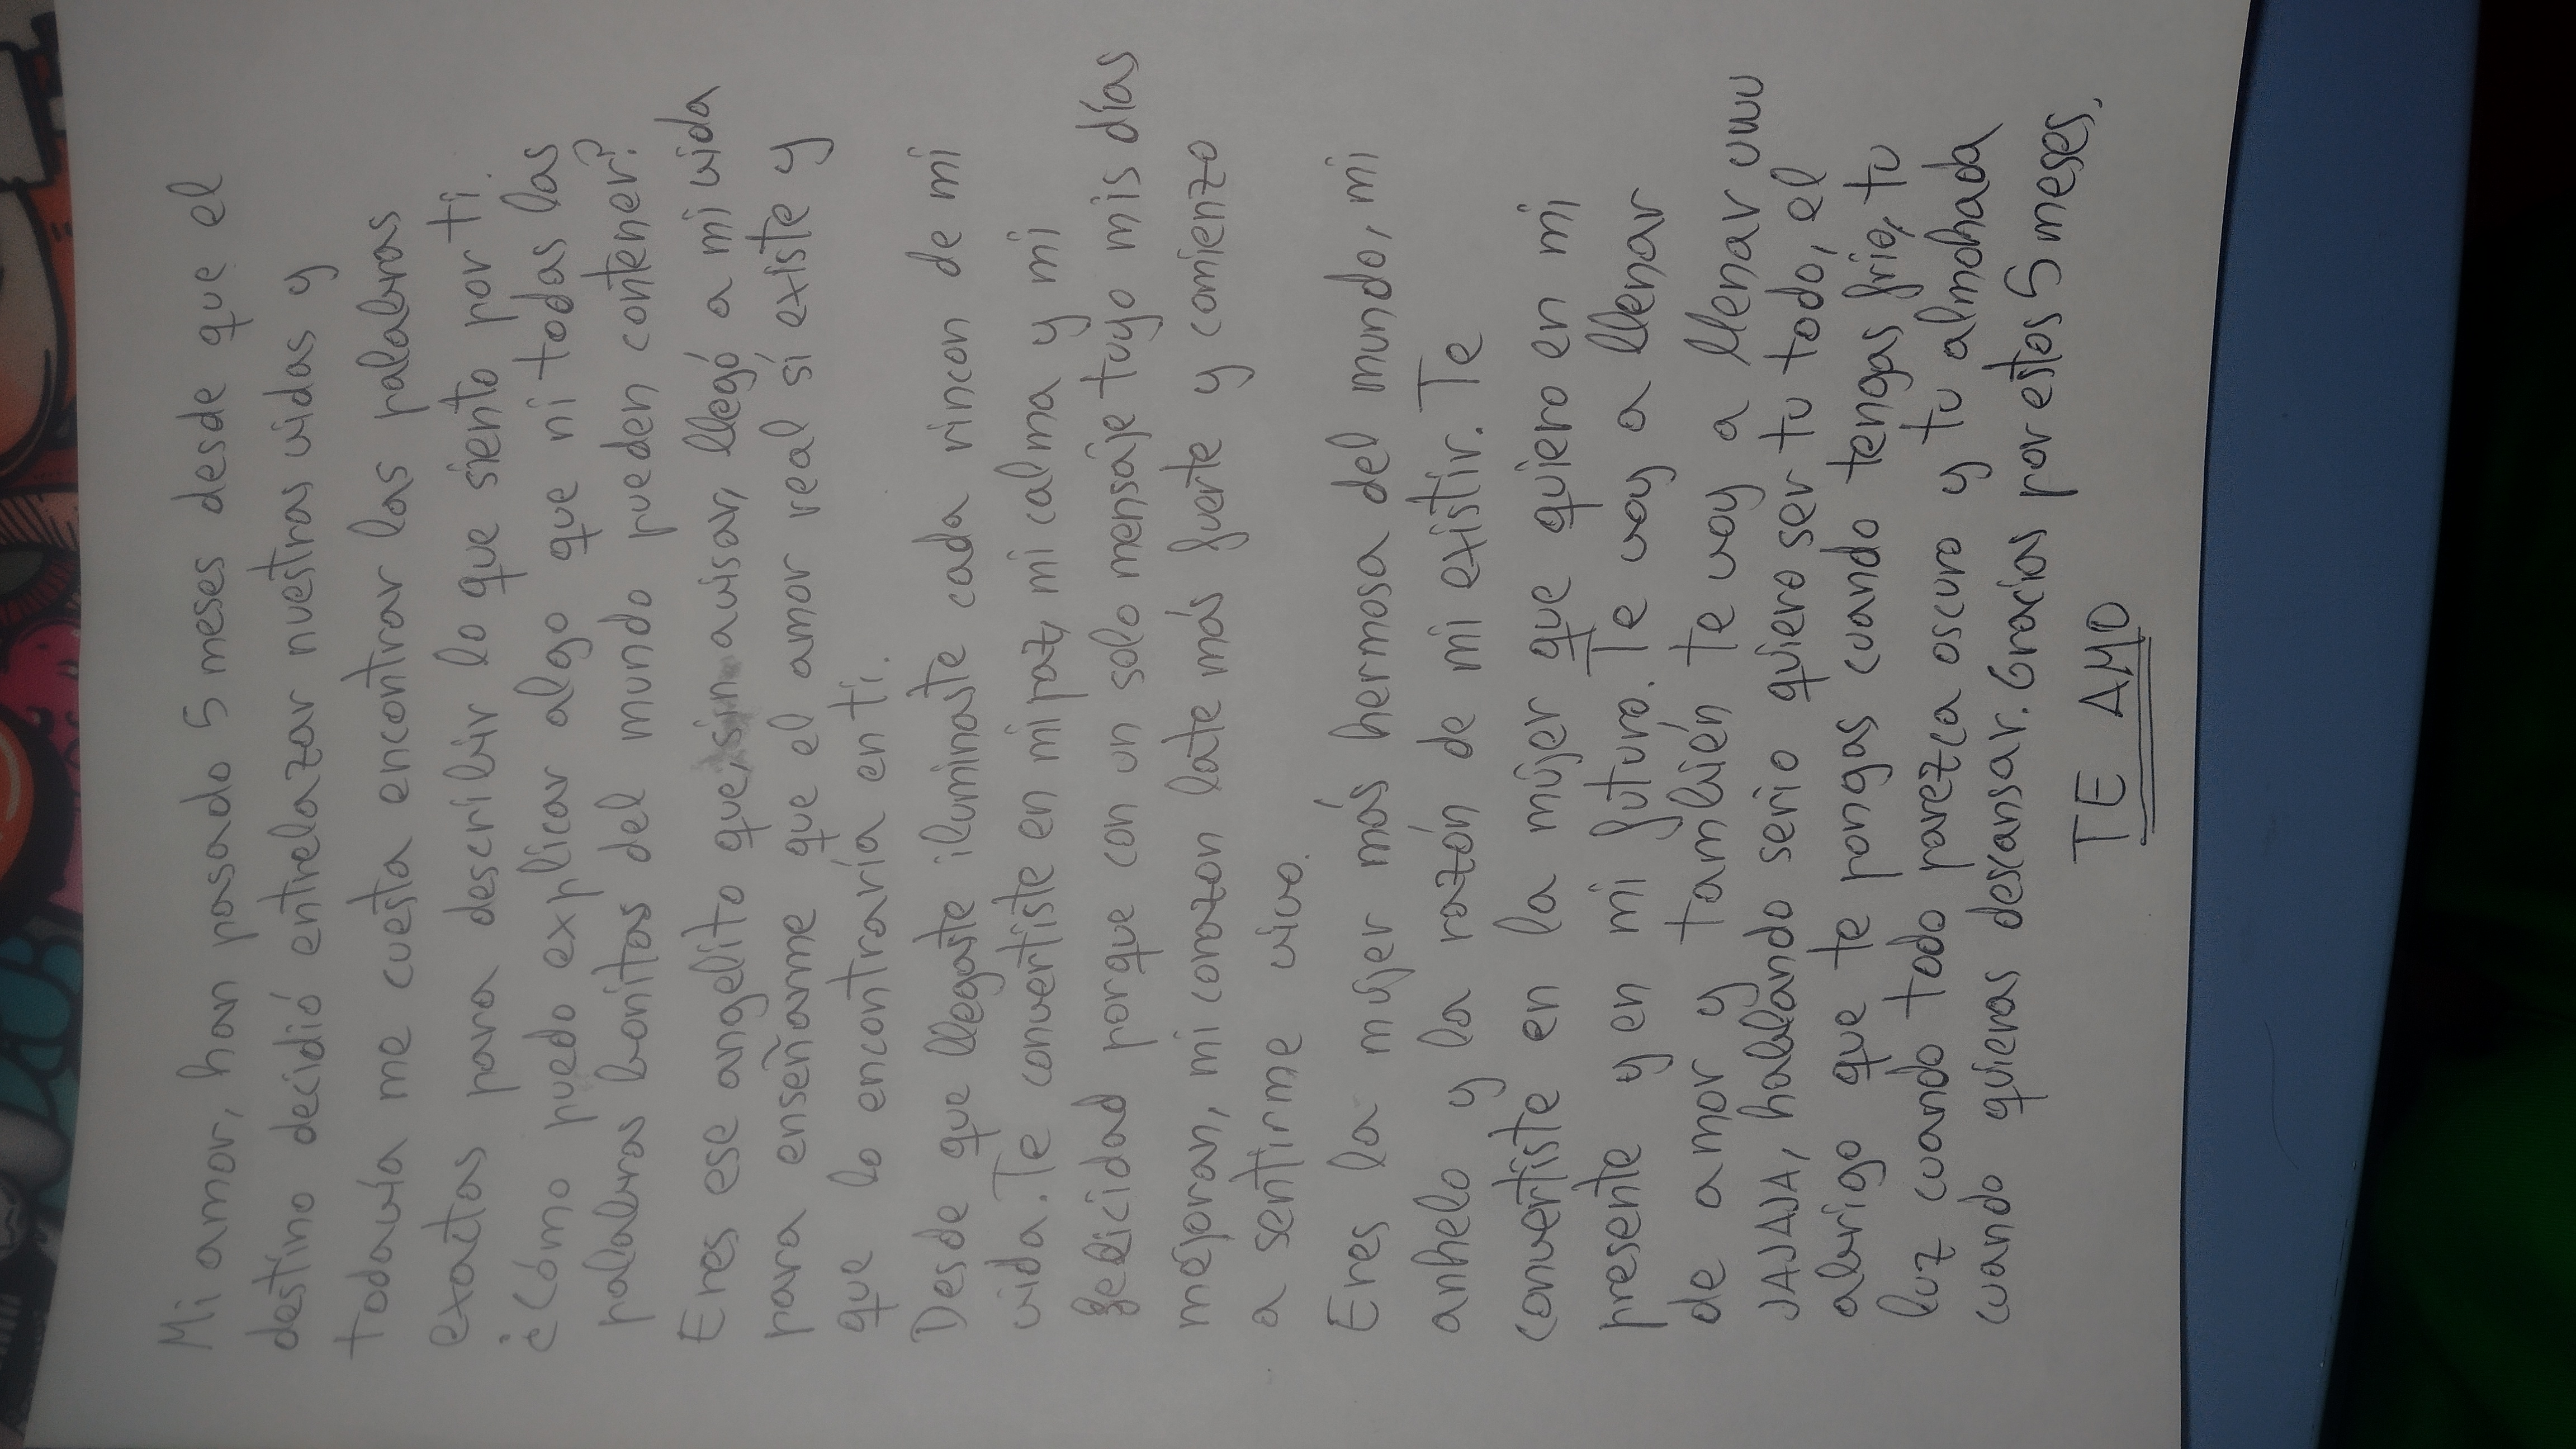 Mi amor, han pasado 5 meses desde que el
destino decidió entrelazar nuestras vidas y
todavía me cuesta encontrar las palabras
exactas para describir lo que siento por ti.
¿Cómo puedo explicar algo que ni todas las
palabras bonitas del mundo pueden contener?
Eres ese angelito que, sin avisar, llegó a mi vida
para enseñarme que el amor real sí existe y
que lo encontraría en ti.
Desde que llegaste iluminaste cada rincon de mi
vida. Te convertiste en mi paz, mi calma y mi
felicidad porque con un solo mensaje tuyo mis días
mejoran, mi corazon late más fuerte y comienzo
a sentirme vivo.
Eres la mujer más hermosa del mundo, mi
anhelo y la razón de mi existir. Te
convertiste en la mujer que quiero en mi
presente y en mi futuro. Te voy a llenar
de amor y también te voy a llenar uwu
JAJAJA, hablando serio quiero ser tu todo, el
abrigo que te pongas cuando tengas frio, tu
luz cuando todo parezca oscuro y tu almohada
cuando quieras descansar. Gracias por estos 5 meses.
TE AMO